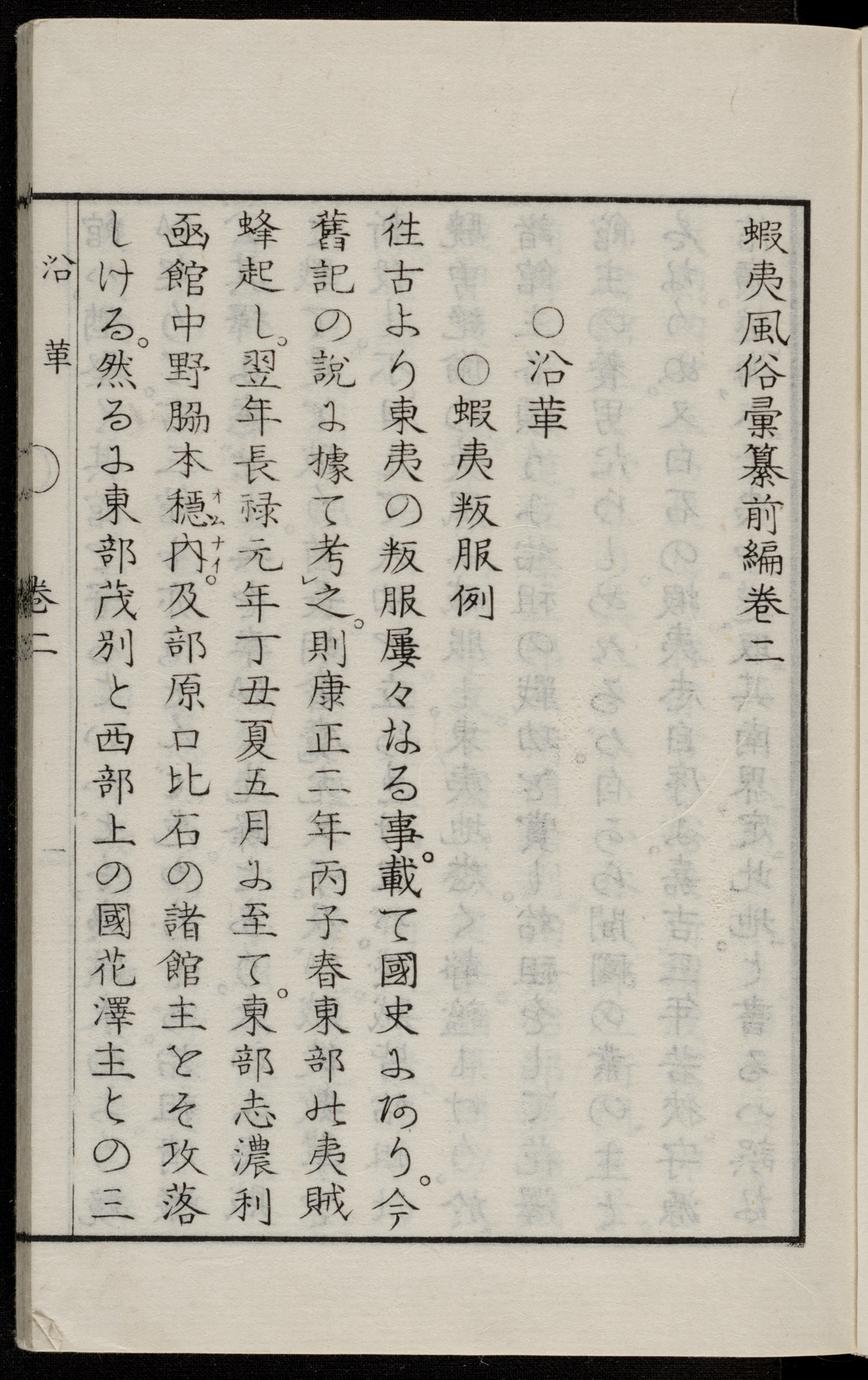 蝦夷風俗彙纂前編卷二
○沿革
○蝦夷叛服例
徃古より東夷の叛服屢々なる事。載て國史に阿り。今
舊記の說に據て考之。則康正二年丙子春東部能夷賊
蜂起し。翌年長禄元年丁丑夏五月に至て。東部志濃利
凾館中野脇本穩內オムナイ。及部原口比石の諸館主をそ攻落
しける。然るに東部茂別と西部上の國花澤主との三
沿革
卷二
一